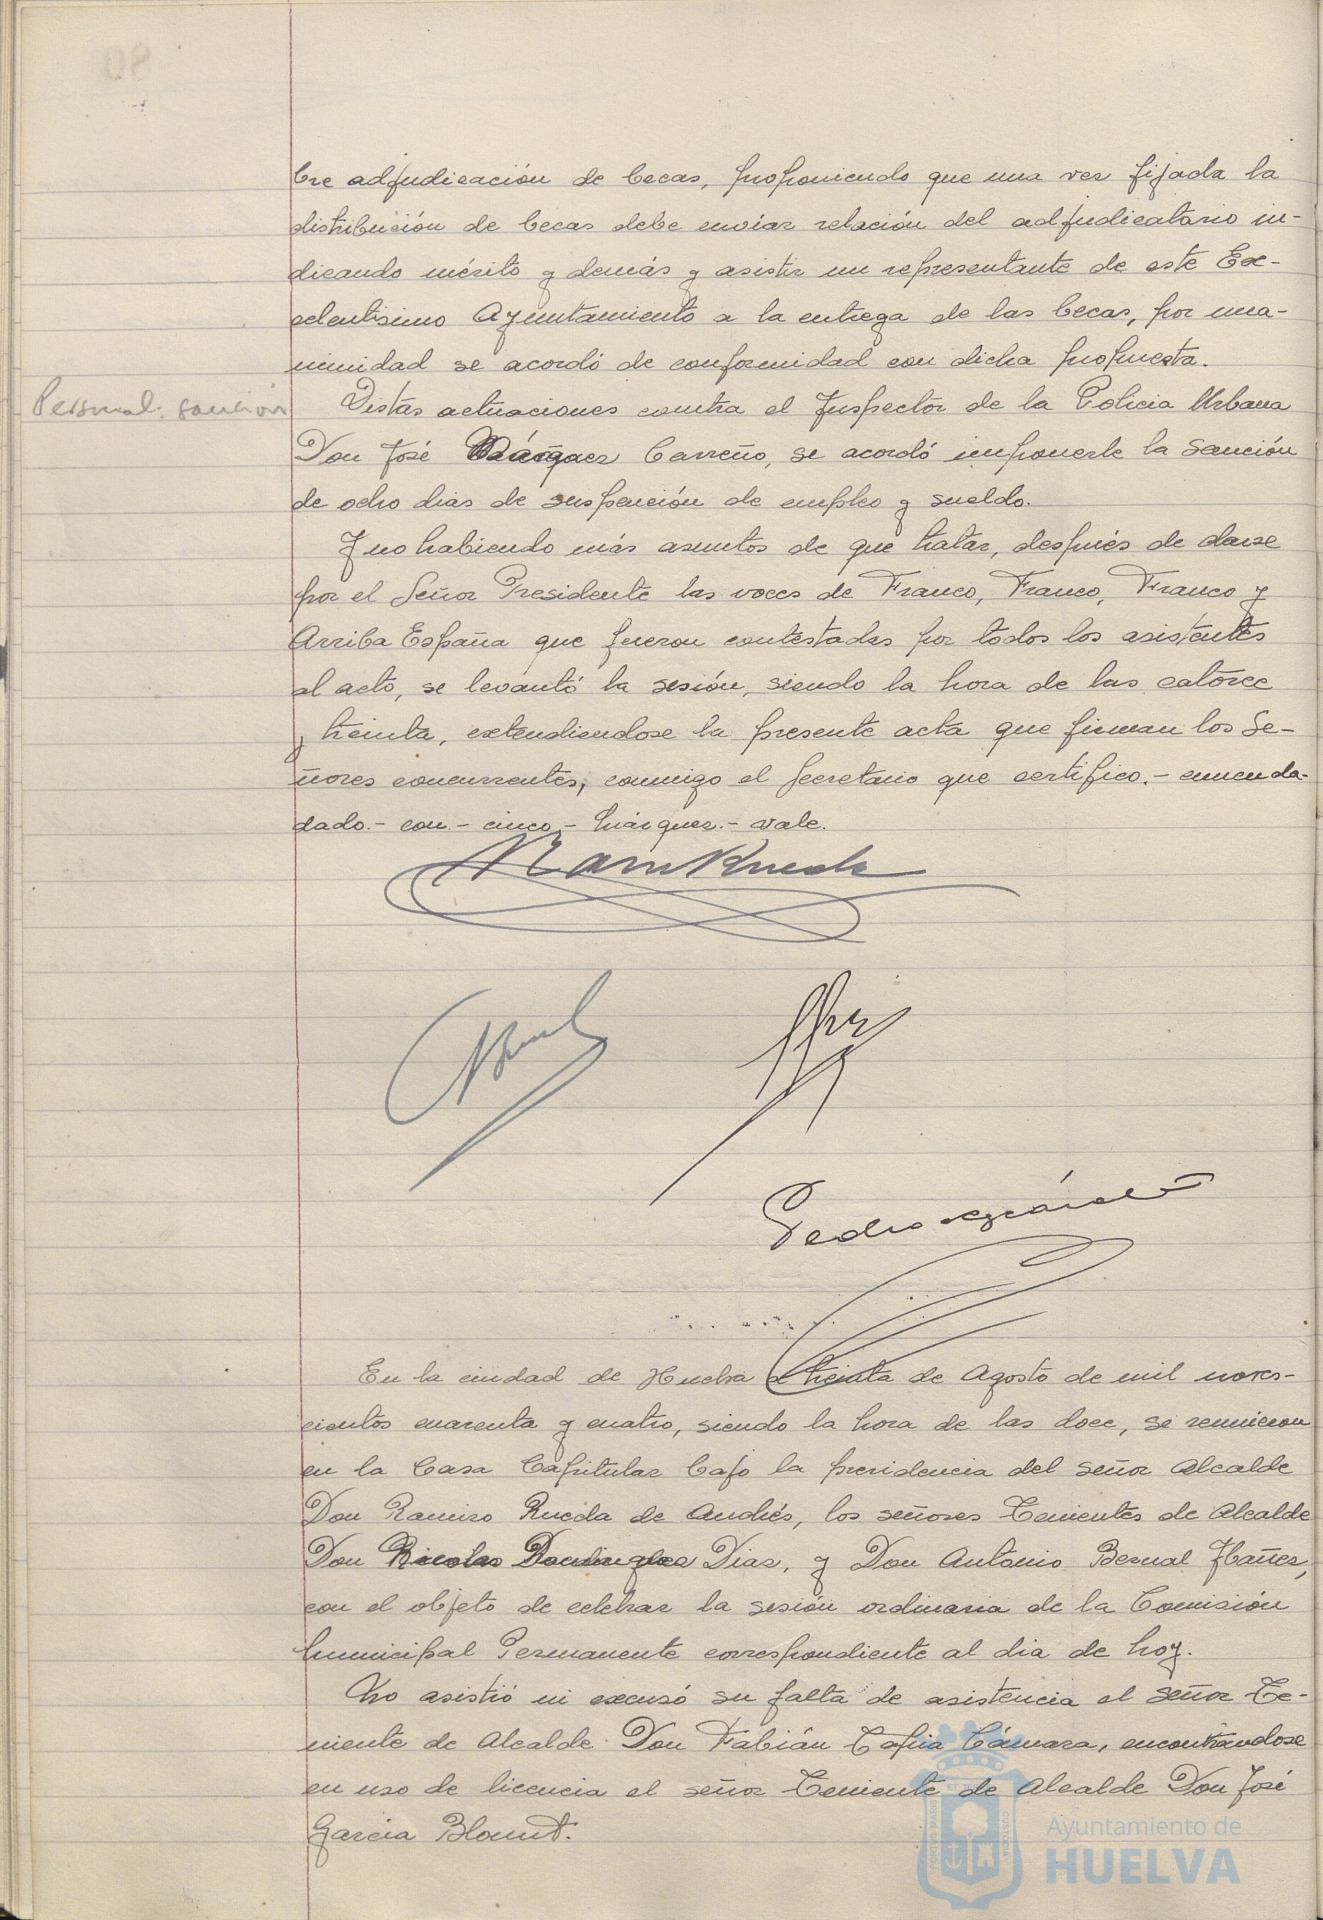 bre adjudicación de becas, proponiendo que una vez fijada la
distribución de becas debe enviar relación del adjudicatario in-
dicando mérito y demás y asistir un representante de este Ex-
celentisimo Ayuntamiento a la entrega de las becas, por una-
nimidad se acordó de conformidad con dicha propuesta.
Personal. sanción
Vistas actuaciones contra el Inspector de la Policia Urbana
Don José Márquez Carreño, se acordó imponerle la sanción
de ocho dias de suspención de empleo y sueldo.
Y no habiendo más asuntos de que tratar, después de darse
por el Señor Presidente las voces de Franco, Franco, Franco y
Arriba España que fueron contestadas por todos los asistentes
al acto, se levantó la sesión, siendo la hora de las catorce
y treinta, extendiendose la presente acta que firman los Se-
ñores concurrentes, conmigo el Secretario que certifico.- enmenda-
dado.- con - cinco - Márquez.- vale.
Ram Rueda
En la ciudad de Huelva a treinta de Agosto de mil noves-
cientos cuarenta y cuatro, siendo la hora de las doce, se reunieron
en la Casa Capitular bajo la presidencia del señor Alcalde
Don Ramiro Rueda de Andrés, los señores Tenientes de Alcalde
Don Nicolas Dominguez Dias, y Don Antonio Bernal Ibañez,
con el objeto de celebrar la sesión ordinaria de la Comisión
Municipal Permanente correspondiente al dia de hoy.
No asistió ni excusó su falta de asistencia el señor Te-
niente de Alcalde Don Fabián Tapia Cámara, encontrandose
en uso de licencia el señor Teniente de Alcalde Don José
Garcia Blount.
Ayuntamiento de
HUELVA